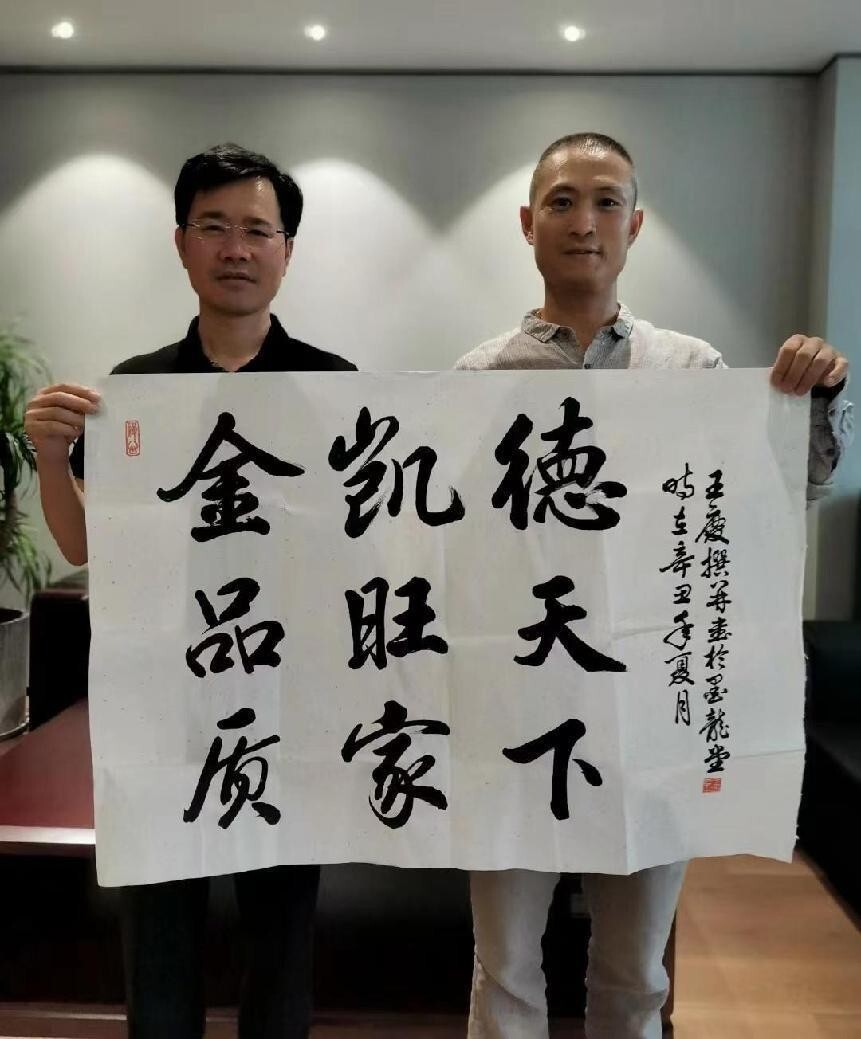 金品质
凯旺家
德天下
时在辛丑年夏月
王慶撰并書於墨龍堂